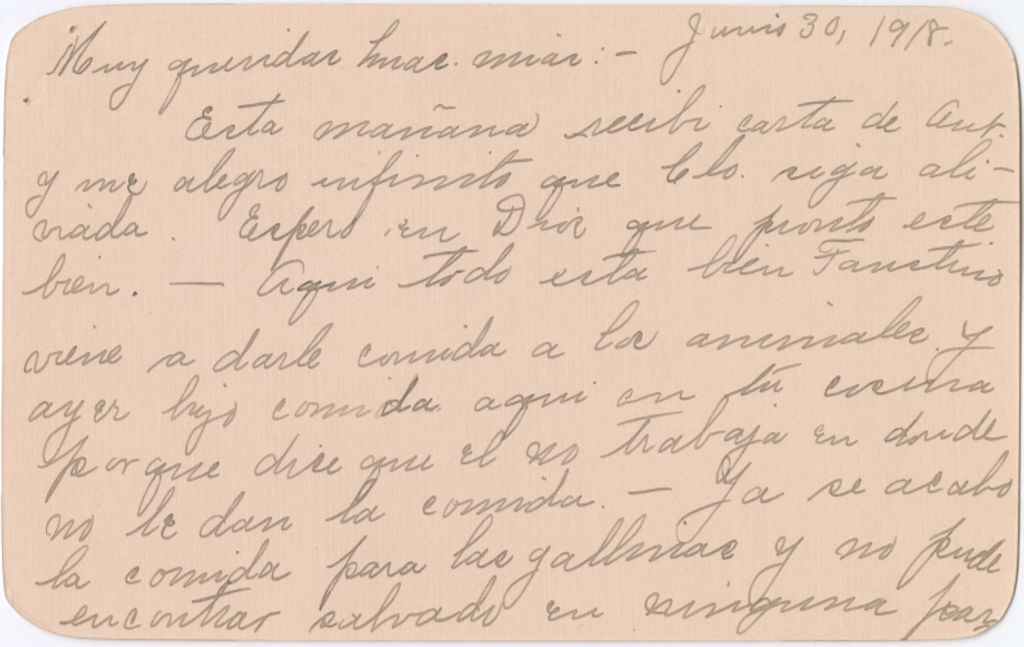 Junio 30, 1918.
Muy queridas hnas. mias:-
Esta mañana recibi carta de Ant.
y me alegro infinito que Clo. siga ali-
viada. Espero en Dios que pronto este
bien. — Aqui todo esta bien Faustino
viene a darle comida a los animales y
ayer hizo comida aqui en tu cocina
porque dice que el no trabaja en donde
no le dan la comida. — Ya se acabo
la comida para las gallinas y no pude
encontrar salvado en ninguna par